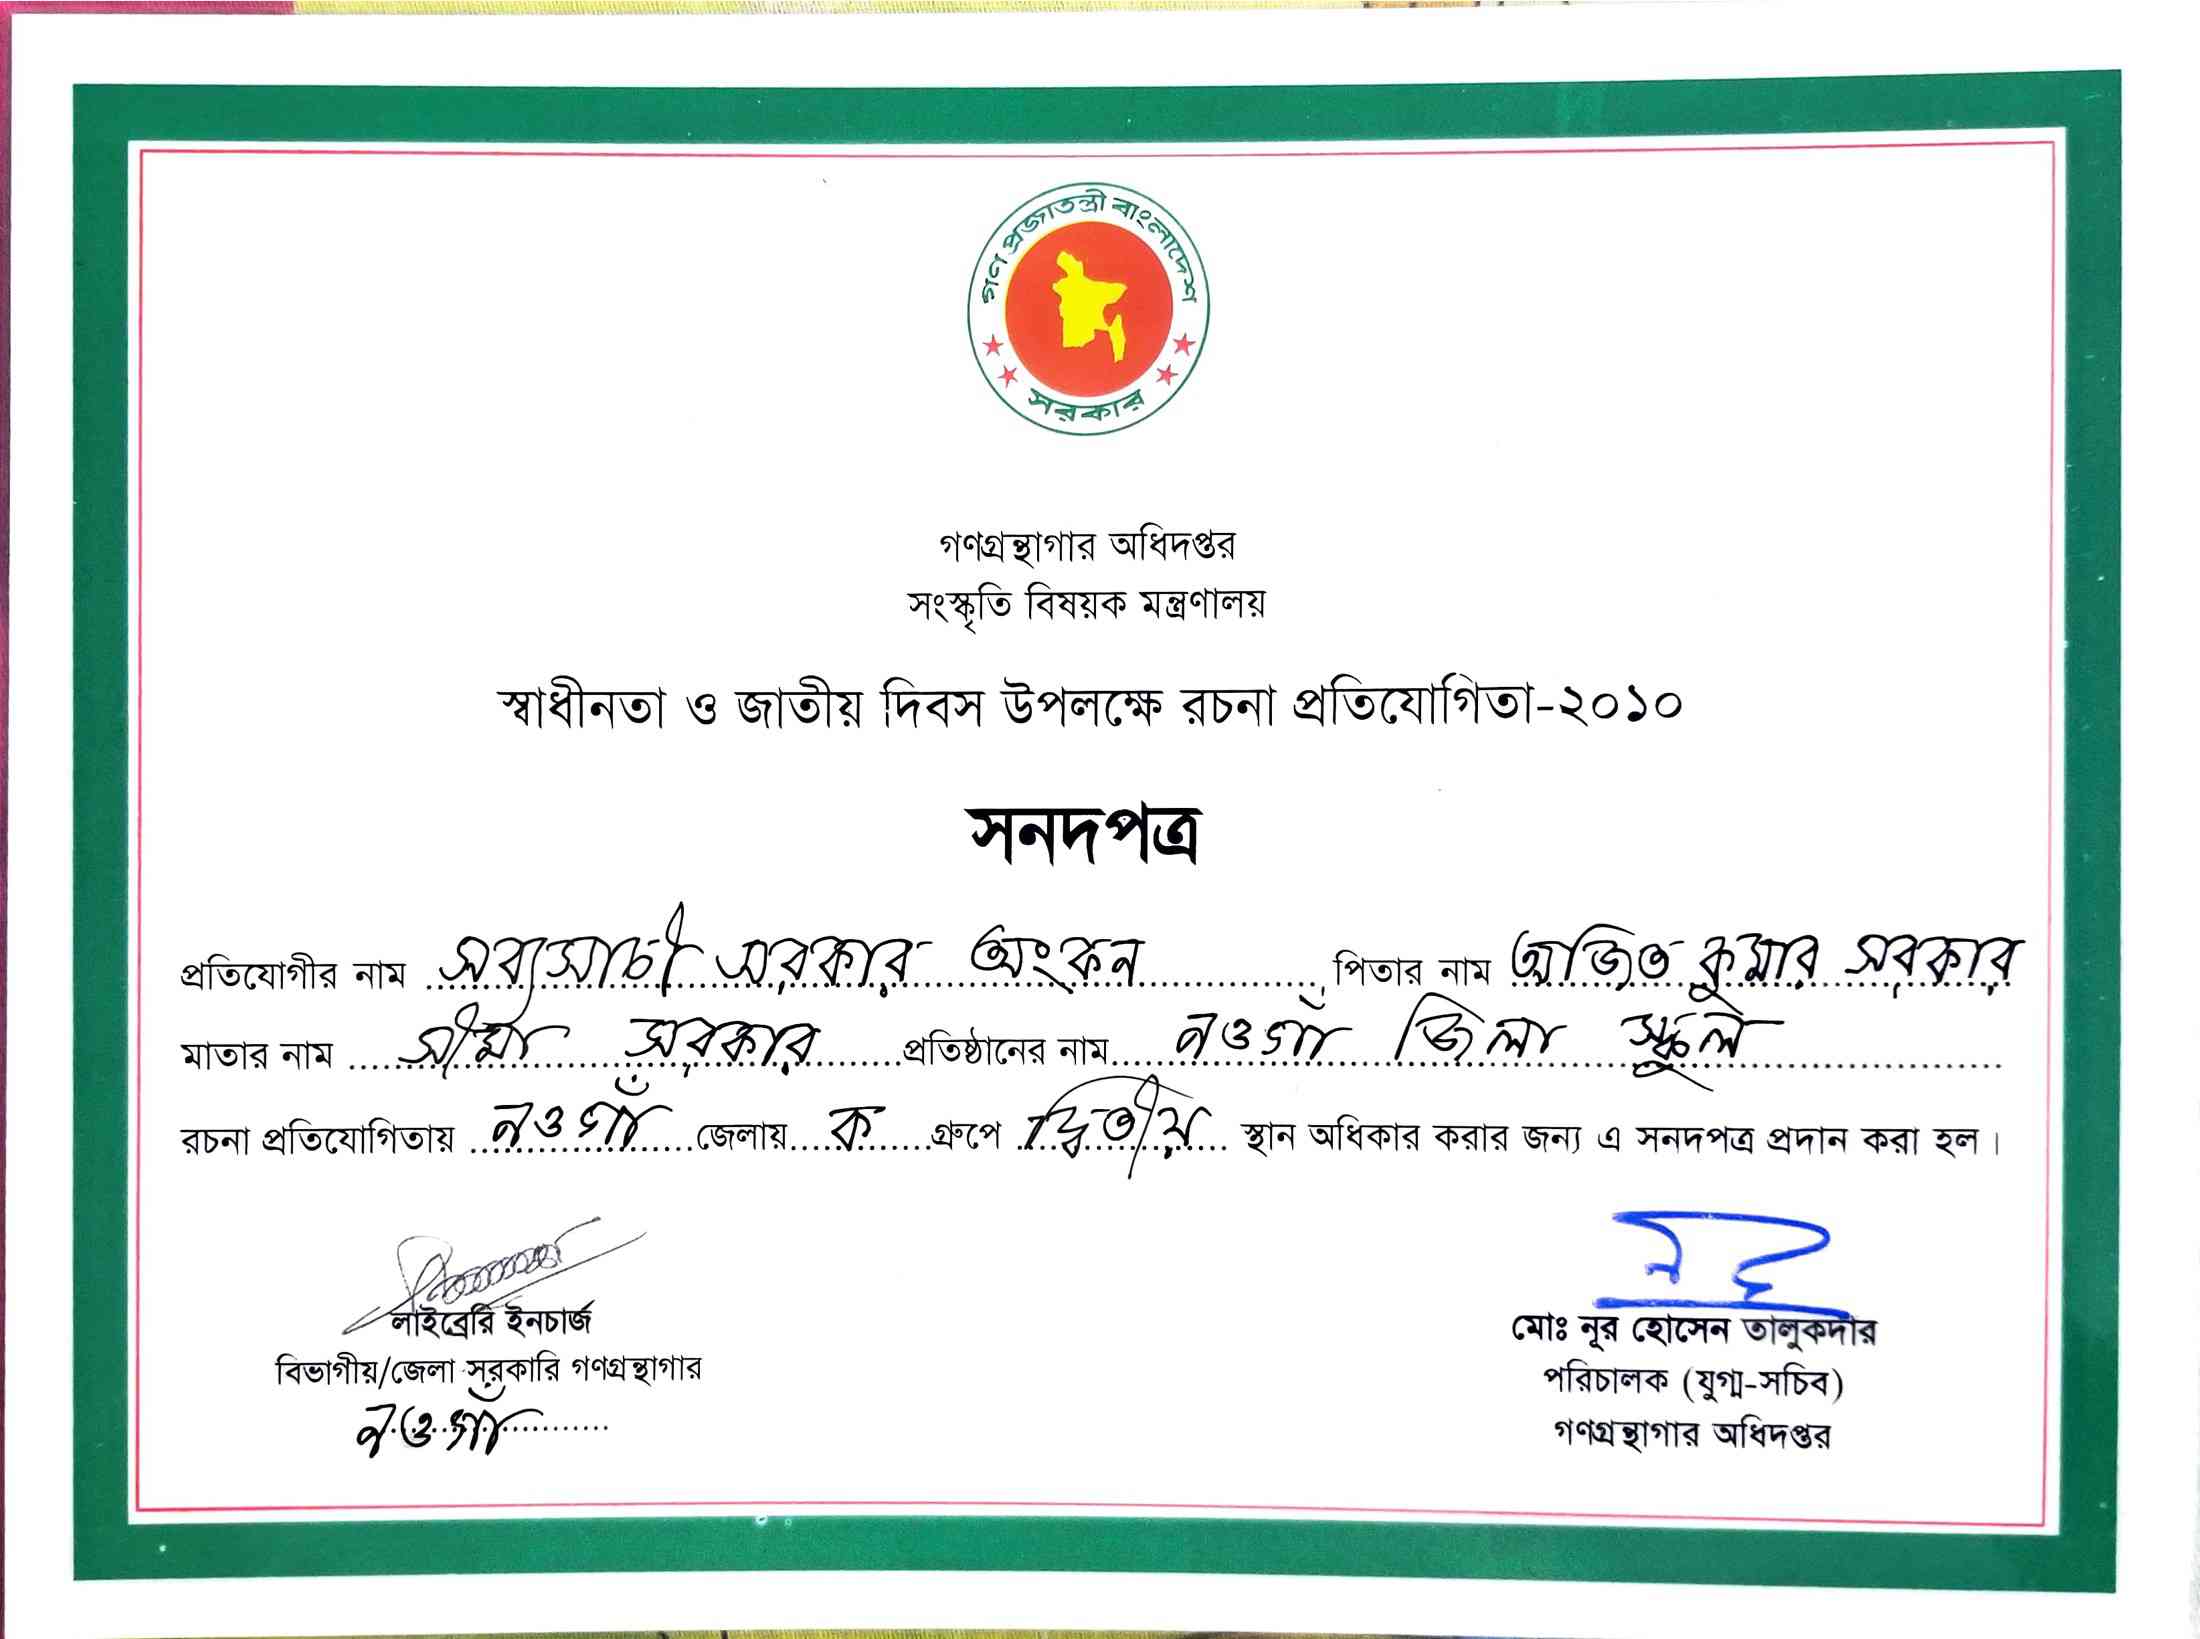 গণ প্রজাতন্ত্রী বাংলাদেশ
সরকার
গণগ্রন্থাগার অধিদপ্তর
সংস্কৃতি বিষয়ক মন্ত্রণালয়
স্বাধীনতা ও জাতীয় দিবস উপলক্ষে রচনা প্রতিযোগিতা-২০১০
সনদপত্র
প্রতিযোগীর নাম সব্যসাচী সরকার অংকন পিতার নাম অজিত কুমার সরকার
মাতার নাম সীমা সরকার প্রতিষ্ঠানের নাম নওগাঁ জিলা স্কুল
রচনা প্রতিযোগিতায় নওগাঁ জেলায় ক গ্রুপে দ্বিতীয় স্থান অধিকার করার জন্য এ সনদপত্র প্রদান করা হল।
লাইব্রেরি ইনচার্জ
বিভাগীয়/জেলা সরকারি গণগ্রন্থাগার
নওগাঁ
মোঃ নূর হোসেন তালুকদার
পরিচালক (যুগ্ম-সচিব)
গণগ্রন্থাগার অধিদপ্তর